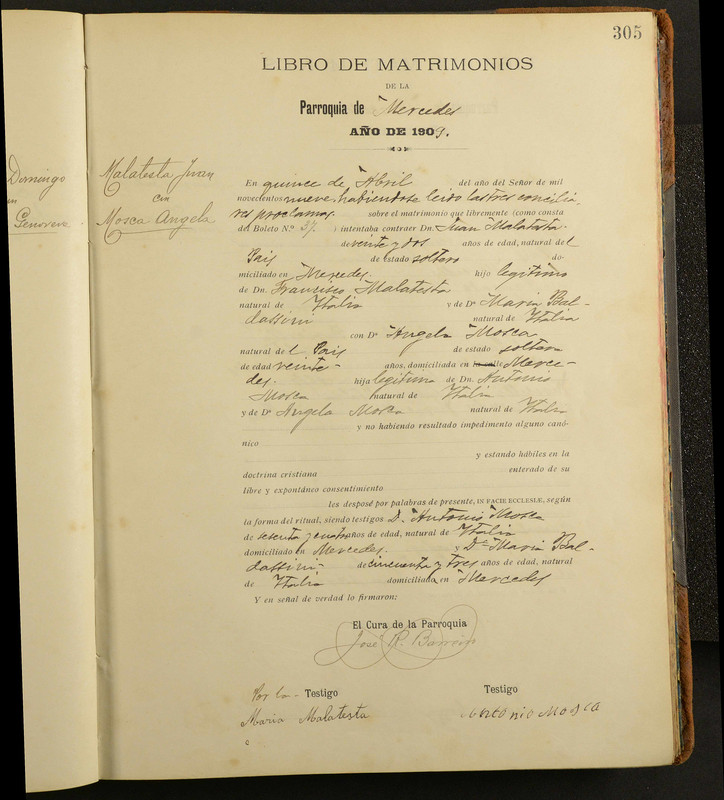 305
LIBRO DE MATRIMONIOS
DE LA
Parroquia de Mercedes
AÑO DE 1909.
Domingo
Genoveva
Malatesta Juan
con
Mosca Angela
En quince de Abril del año del Señor de mil
novecientos nueve, habiendose leido las tres concilia-
res proclamas sobre el matrimonio que libremente (como consta
del Boleto N.º 37 intentaba contraer Dn. Juan Malatesta
de veinte y dos años de edad, natural del
Pais de estado soltero do-
miciliado en Mercedes. hijo legitimo
de Dn. Francisco Malatesta
natural de Italia y de Dª Maria Bal-
dassini natural de Italia
con Dª Angela Mosca
natural del Pais de estado soltera
de edad veinte- años, domiciliada en la calle Merce-
des. hija legitima de Dn. Antonio
Mosca natural de Italia
y de Dª Angela Mosca natural de Italia
y no habiendo resultado impedimento alguno canó-
nico
y estando hábiles en la
doctrina cristiana enterado de su
libre y expontáneo consentimiento
les desposé por palabras de presente, IN FACIE ECCLESIÆ, según
la forma del ritual, siendo testigos D. Antonio Mosca
de sesenta y cuatro años de edad, natural de Italia
domiciliado en Mercedes. y Dª Maria Bal-
dassini- de cincuenta y tres años de edad, natural
de Italia domiciliada en Mercedes
Y en señal de verdad lo firmaron:
El Cura de la Parroquia
José R.
Por la - Testigo Testigo
Maria Malatesta Antonio Mosca